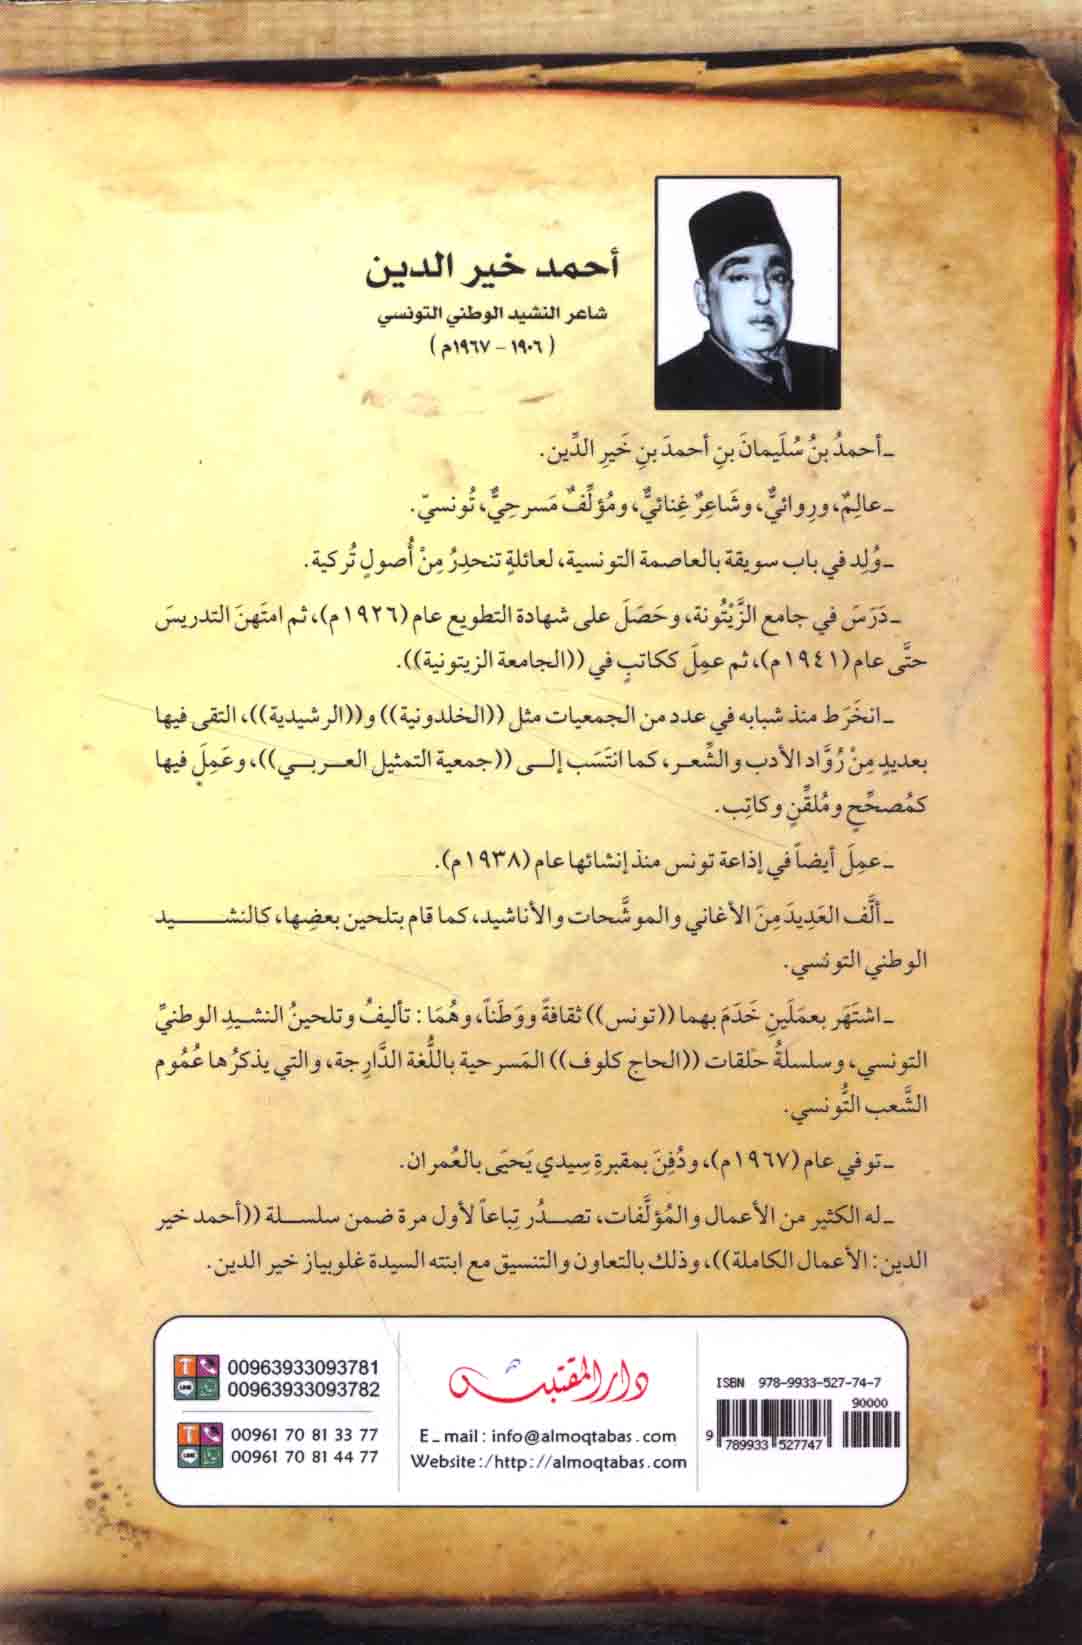 أحمد خير الدين
شاعر النشيد الوطني التونسي
(١٩٠٦ - ١٩٦٧م)
ـ أحمدُ بنُ سُلَيمانَ بنِ أحمدَ بنِ خَيرِ الدِّين.
ـ عالِمٌ، ورِوائيٌّ، وشَاعِرٌ غِنائيٌّ، ومُؤلِّفٌ مَسرحِيٌّ، تُونسيّ.
ـ وُلِد في باب سويقة بالعاصمة التونسية، لعائلةٍ تنحدِرُ مِنْ أُصولٍ تُركية.
ـ دَرَسَ في جامع الزَّيْتُونة، وحَصَلَ على شهادة التطويع عام (١٩٢٦م)، ثم امتَهنَ التدريسَ
حتَّى عام (١٩٤١م)، ثم عمِلَ ككاتبٍ في ((الجامعة الزيتونية)).
ـ انخَرَط منذ شبابه في عدد من الجمعيات مثل ((الخلدونية)) و((الرشيدية))، التقى فيها
بعديدٍ مِنْ رُوَّاد الأدب والشِّعر، كما انتَسَب إلى ((جمعية التمثيل العربي))، وعَمِلَ فيها
كمُصحِّحٍ ومُلقِّنٍ وكاتِب.
ـ عمِلَ أيضاً في إذاعة تونس منذ إنشائها عام (١٩٣٨م).
ـ ألَّف العَدِيدَ مِنَ الأغاني والموشَّحات والأناشيد، كما قام بتلحين بعضِها، كالنشيد
الوطني التونسي.
ـ اشتَهَر بعمَلَينِ خَدَمَ بهما ((تونس)) ثقافةً ووَطَناً، وهُمَا: تأليفُ وتلحينُ النشيدِ الوطنيِّ
التونسي، وسلسلةُ حلقات ((الحاج كلوف)) المَسرحية باللُّغة الدَّارِجة، والتي يذكرُها عُمُوم
الشَّعب التُّونسي.
ـ توفي عام (١٩٦٧م)، ودُفِنَ بمقبرةِ سِيدي يَحيَى بالعُمران.
ـ له الكثير من الأعمال والمُؤلَّفات، تصدُر تِباعاً لأول مرة ضمن سلسلة ((أحمد خير
الدين: الأعمال الكاملة))، وذلك بالتعاون والتنسيق مع ابنته السيدة غلوبياز خير الدين.
00963933093781
00963933093782
00961 70 81 33 77
00961 70 81 44 77
دار المقتبس
E_mail: info@almoqtabas.com
Website:/http://almoqtabas.com
ISBN 978-9933-527-74-7
90000
9 789933 527747